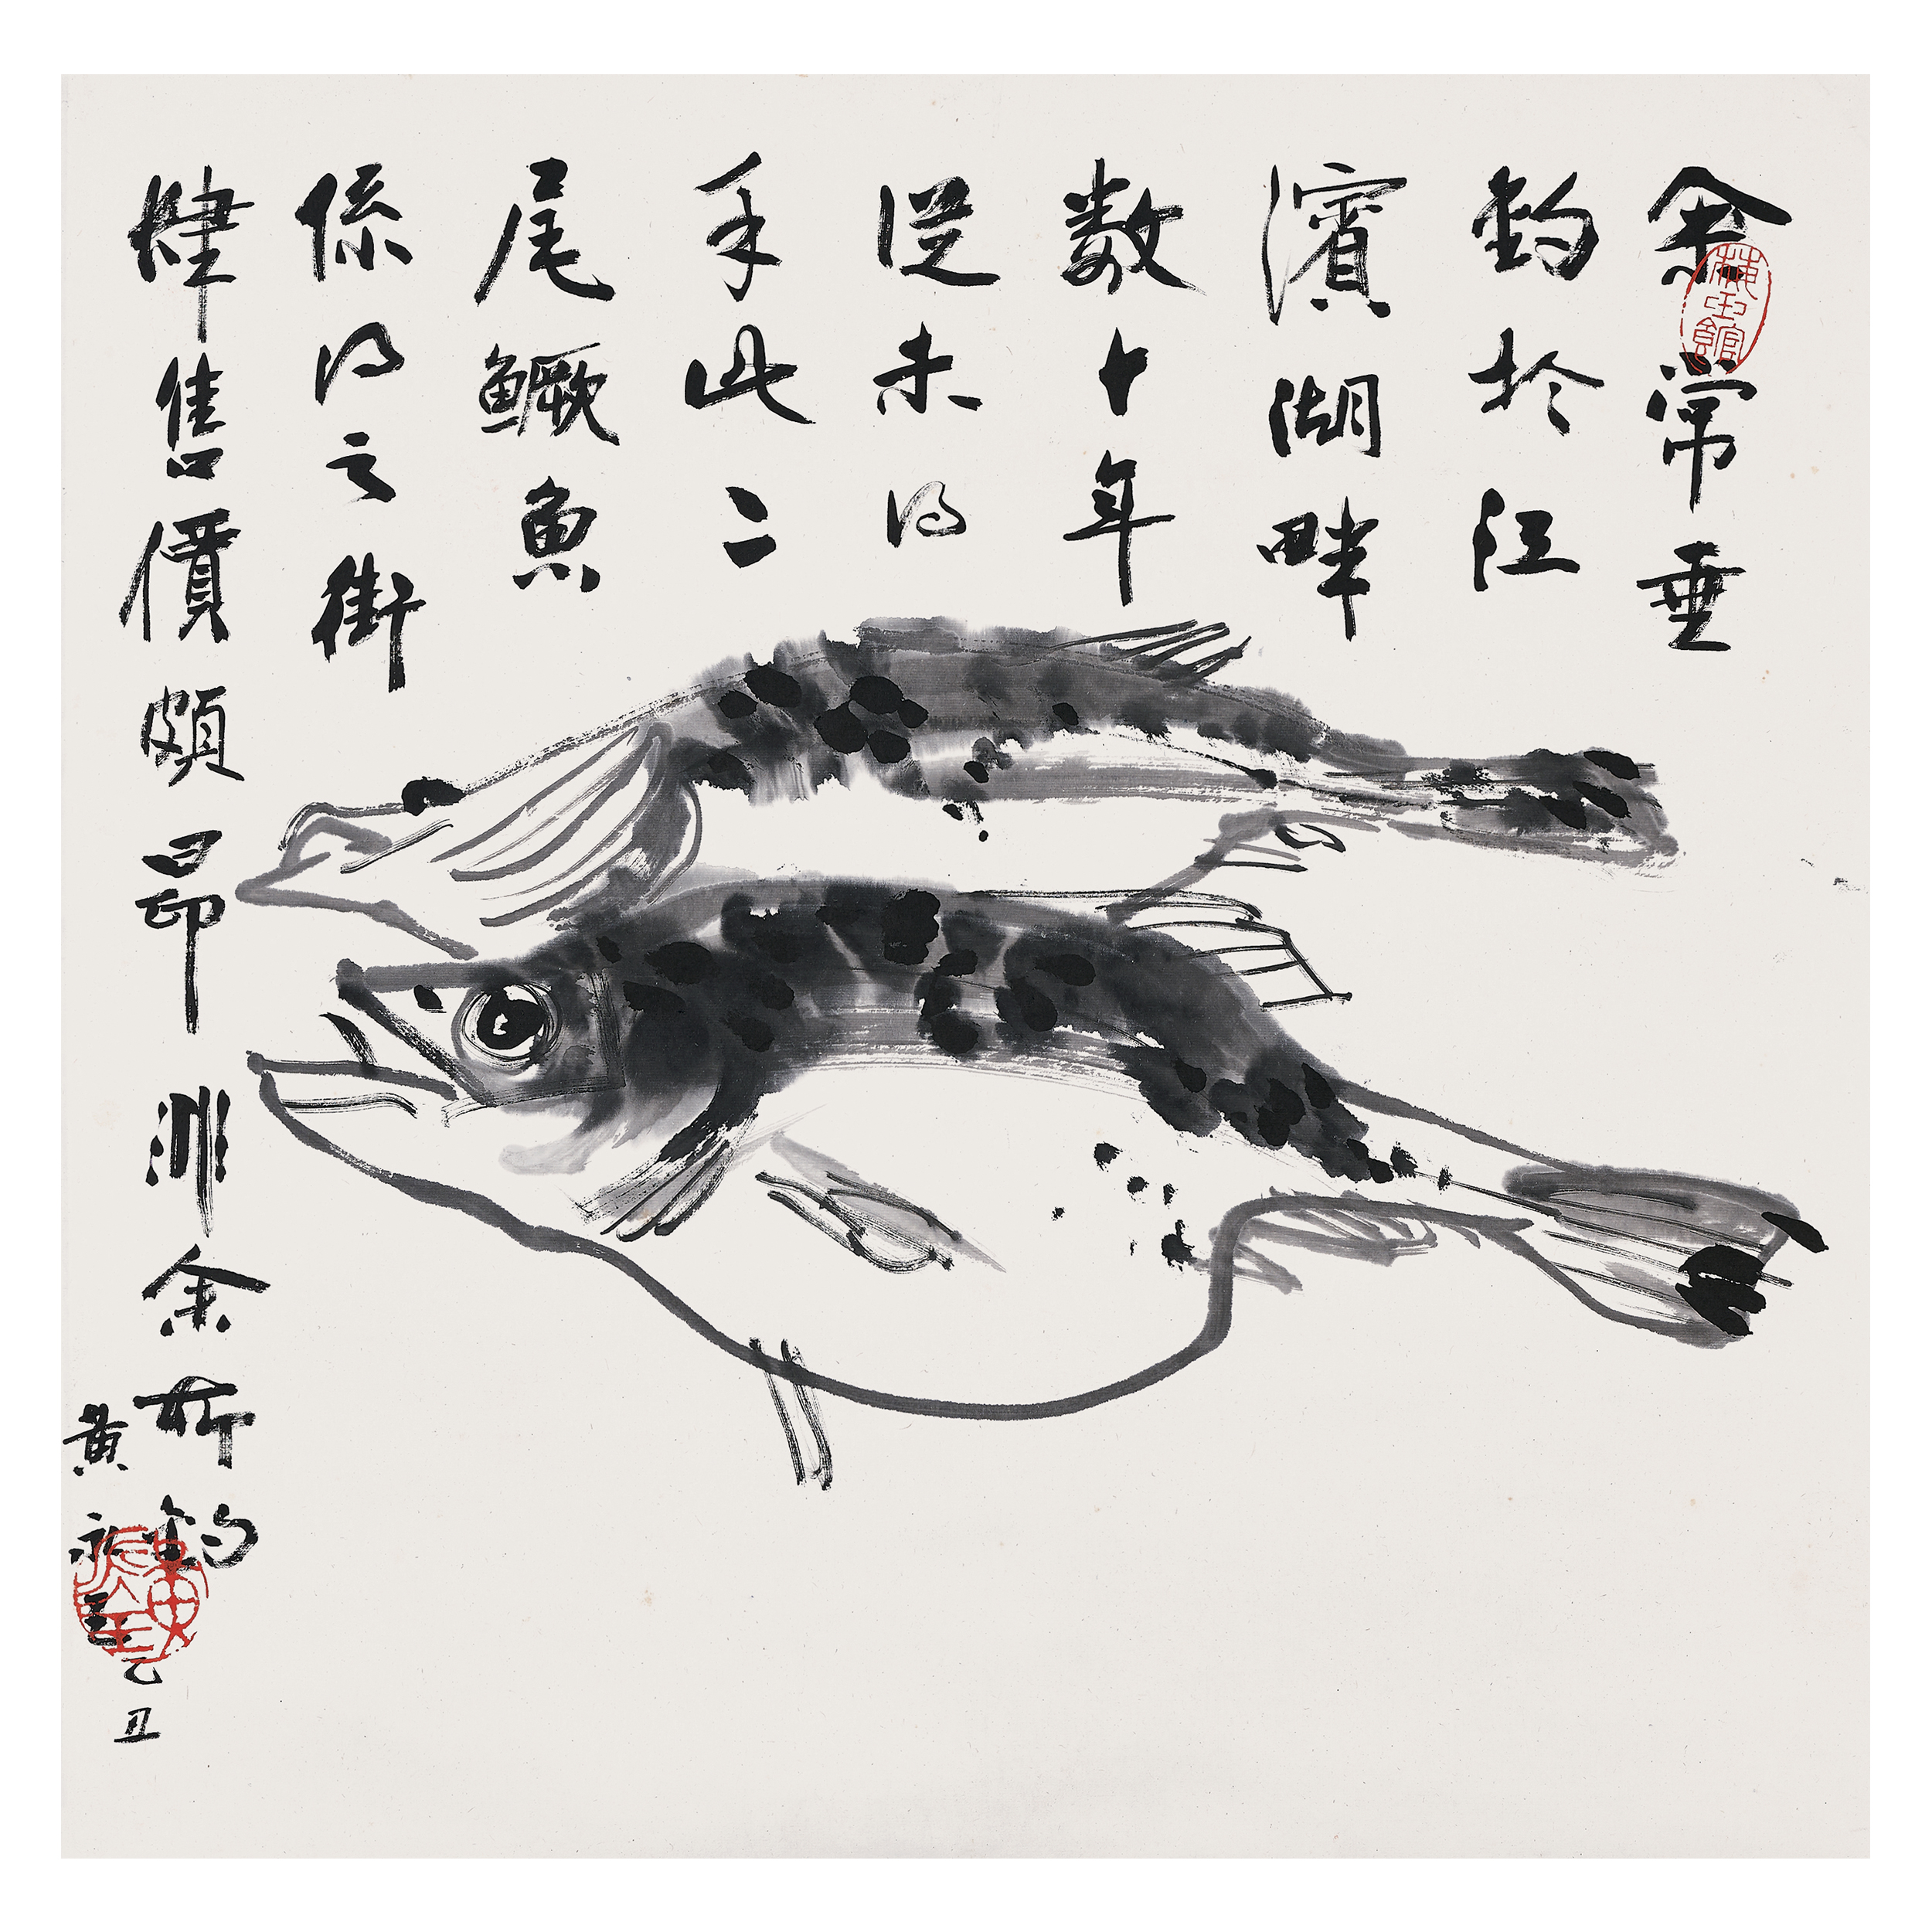 余常垂
釣於江
濱湖畔
数十年
從未得
手此二
尾鱖魚
係得之街
肆售價頗昂非余所釣
黃永玉
乙丑